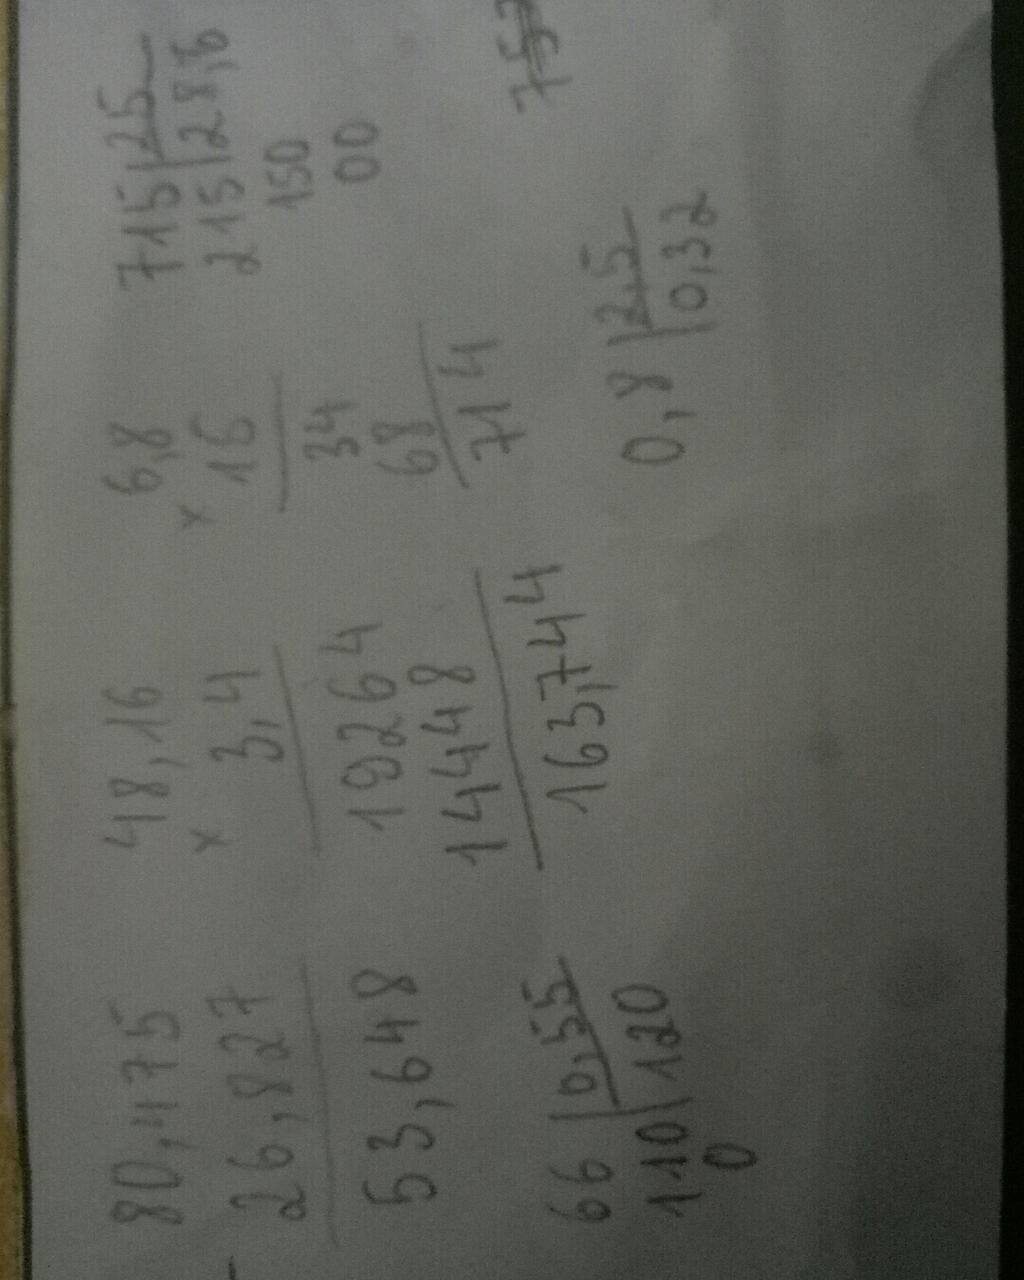 80,475
26,827
53,648
48,16
x 3,4
19264
14448
163,744
6,8
x 15
34
68
714
715 25
215 28,6
150
00
66 0,55
110 120
0
0,8 2,5
0,32